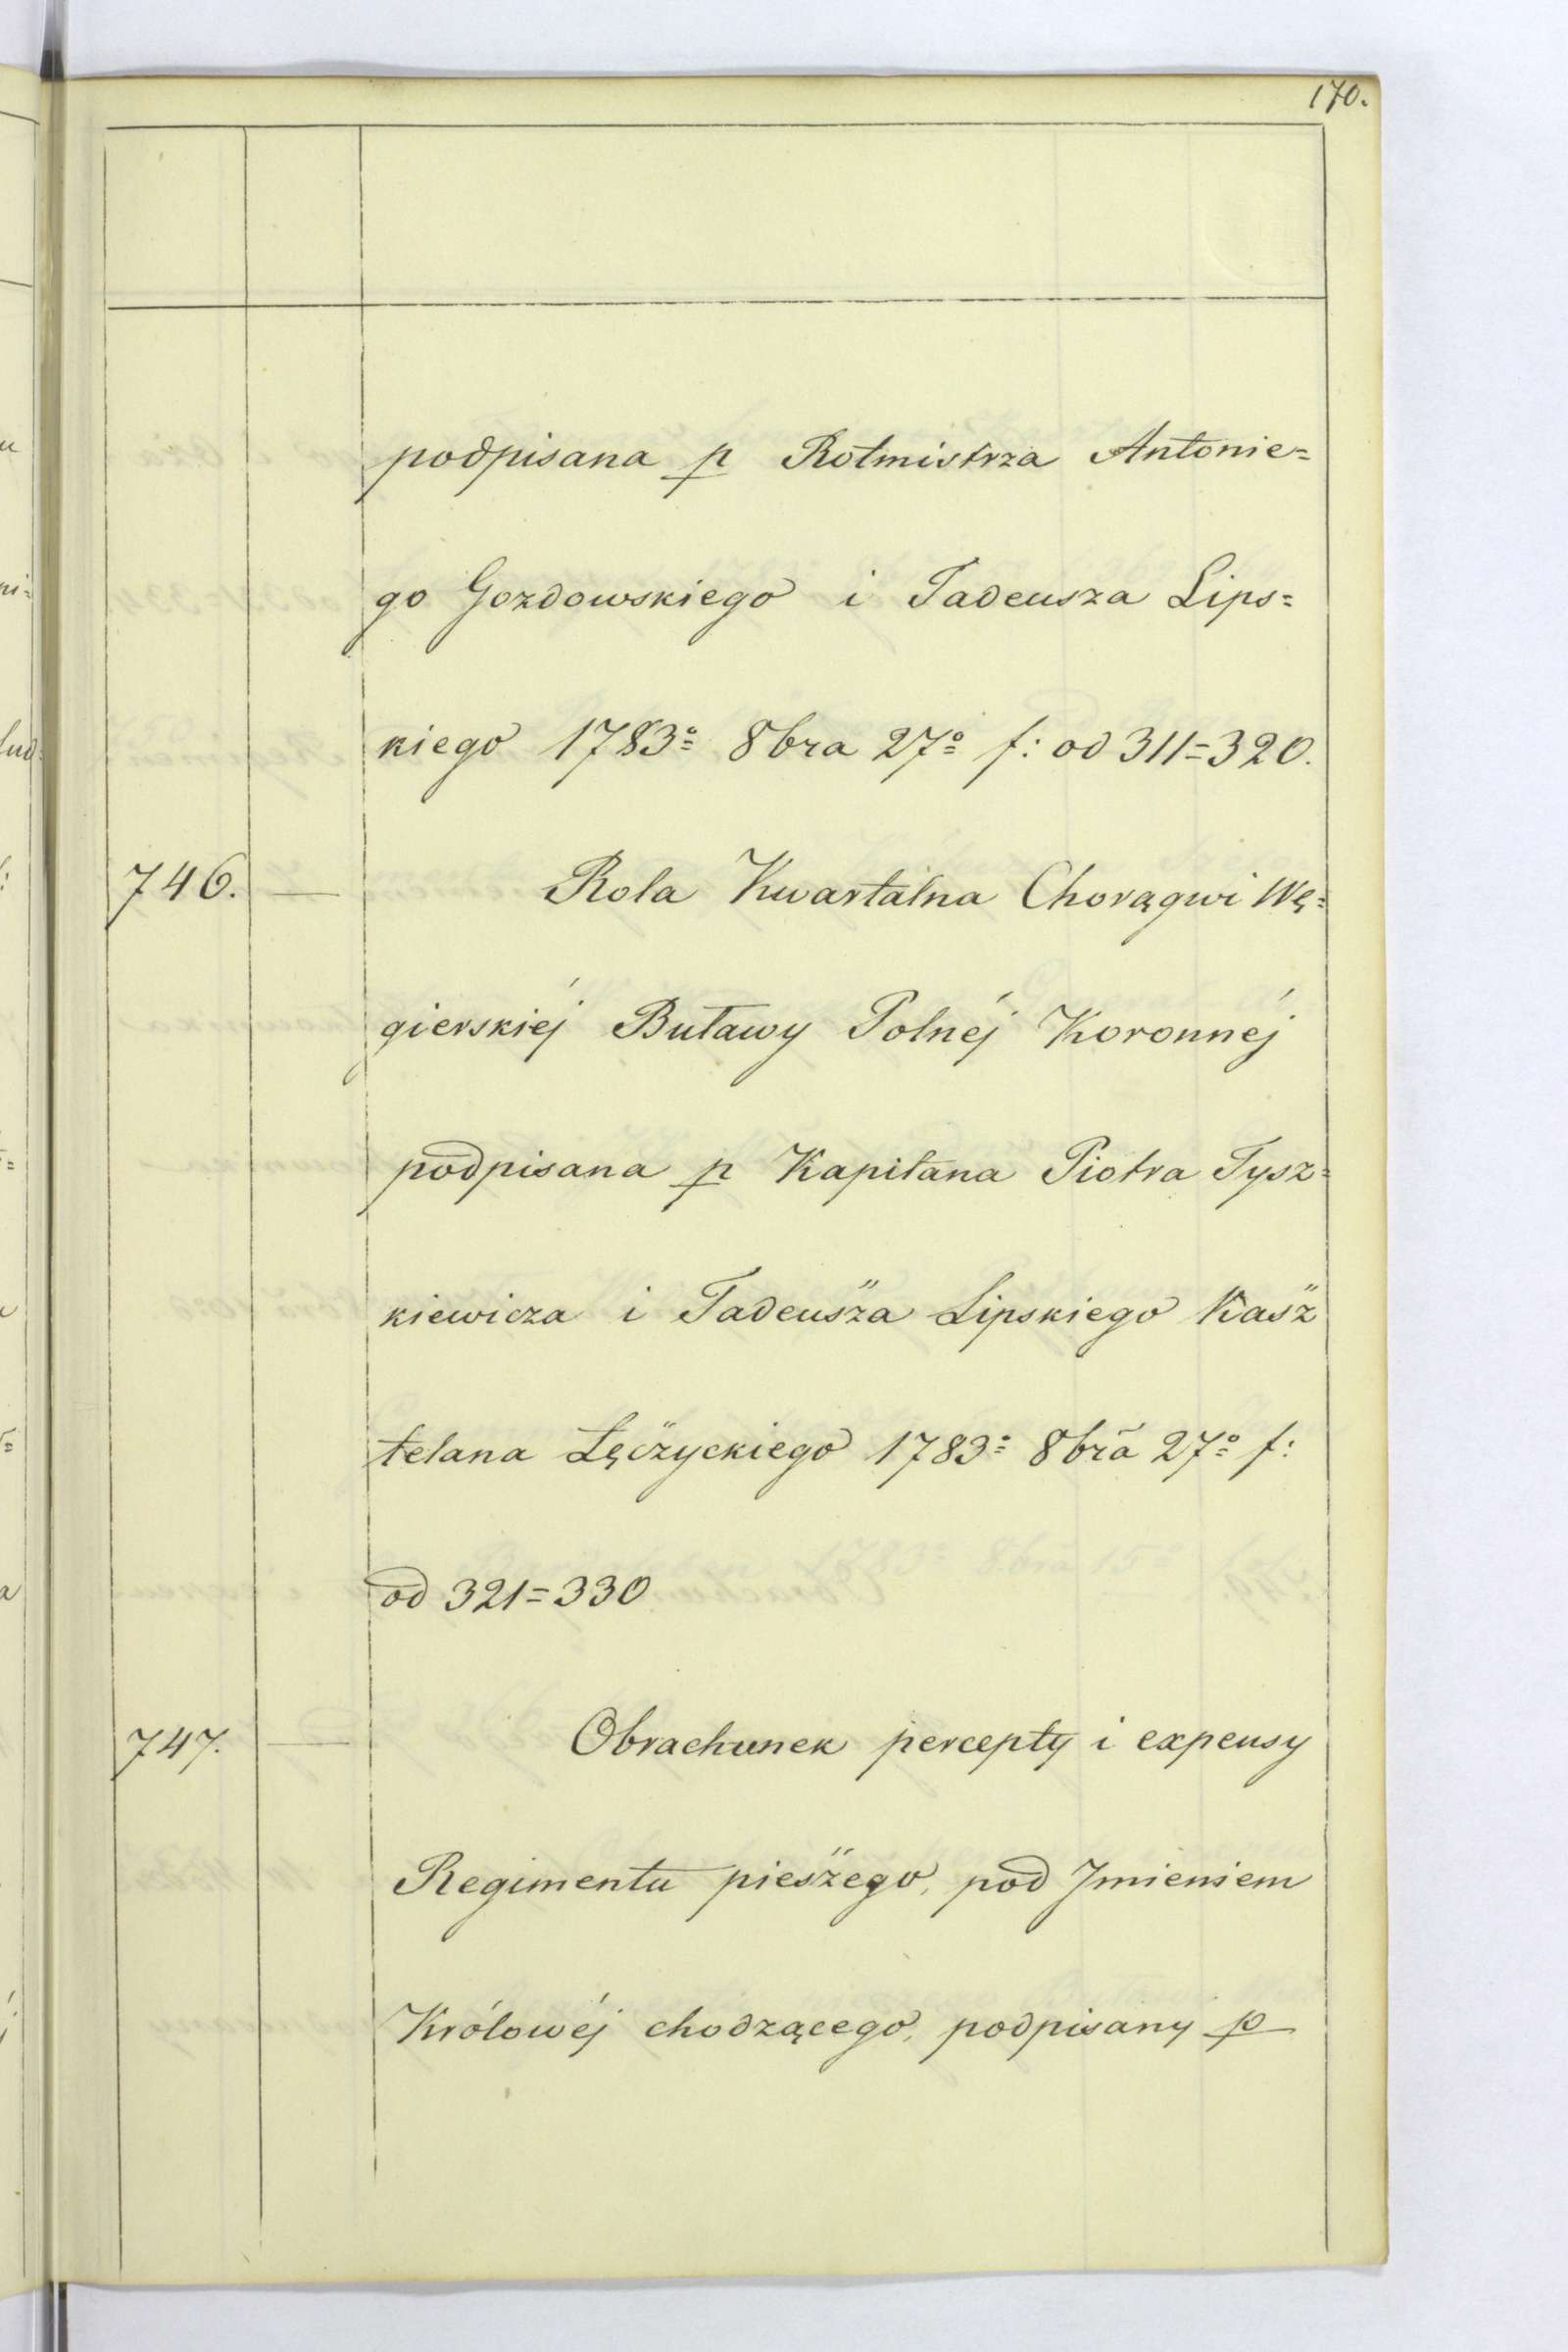 170.
podpisana p Rotmistrza Antonie=
go Gozdowskiego i Tadeusza Lips=
kiego 1783º 8bra 27º f: od 311=320.
746. — Rola Kwartalna Chorągwi Wę=
gierskiéj Buławy Polnéj Koronnéj
podpisana p Kapitana Piotra Tysz=
kiewicza i Tadeusza Lipskiego Kasz
telana Łęczyckiego 1783º 8bra 27º f:
od 321=330
747. — Obrachunek percepty i expensy
Regimentu pieszego, pod Jmieniem
Królowéj chodzącego, podpisany p